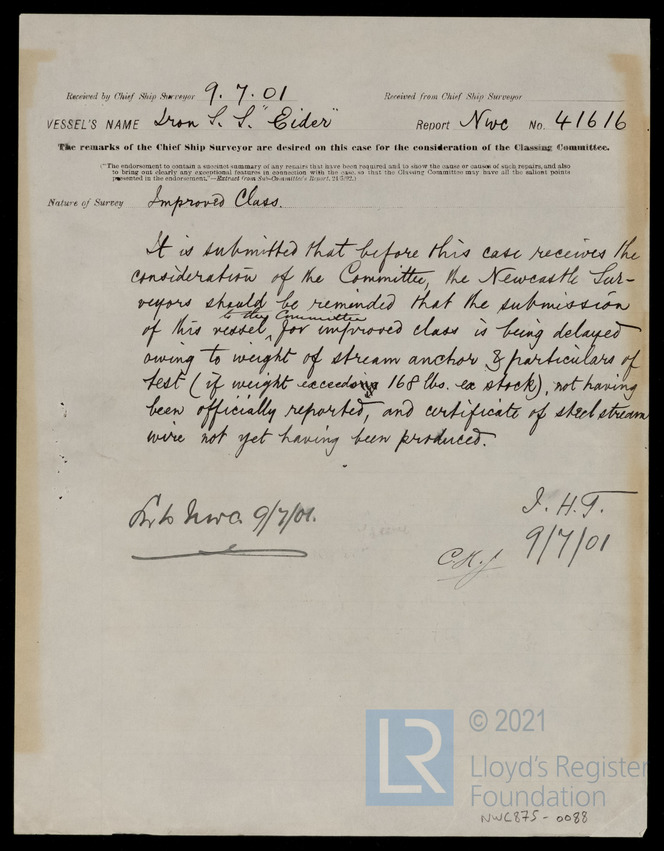 Received by Chief Ship Surveyor 9.7.01 Received from Chief Ship Surveyor
VESSEL'S NAME Iron S.S. "Eider" Report Nwc No. 41616
The remarks of the Chief Ship Surveyor are desired on this case for the consideration of the Classing Committee.
("The endorsement to contain a succinct summary of any repairs that have been required and to show the cause or causes of such repairs, and also
to bring out clearly any exceptional features in connection with the case, so that the Classing Committee may have all the salient points
presented in the endorsement."—Extract from Sub-Committee's Report, 21/3/92.)
Nature of Survey Improved Class.
It is submitted that before this case receives the
consideration of the Committee, the Newcastle Sur-
veyors should be reminded that the submission
to the Committee
of this vessel, for improved class is being delayed
owing to weight of stream anchor & particulars of
test (if weight exceeds 168 lbs. ex stock), not having
been officially reported, and certificate of steel stream
wire not yet having been produced.
Nwc. 9/7/01.
J. H. T.
9/7/01
© 2021
LR
Lloyd's Register
Foundation
NWC875-0088